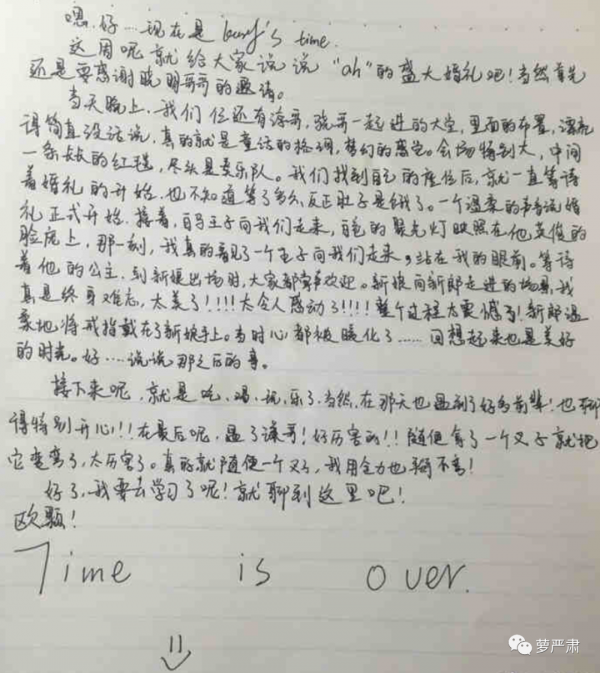 嗯.好....现在是 boy's time.
这回呢就给大家说说“ah”的盛大婚礼吧!当然首先
还是要感谢晓明哥哥的邀请。
当天晚上.我们 还有涛哥,骁哥一起进的大堂,里面的布置,漂亮
得简直没话说,真的就是童话的格调,梦幻的感觉。会场特别大,中间
一条长长的红毯,尽头是交乐队。我们找到自己的座位后,就一直等待
着婚礼的开始.也不知道等了多久,反正肚子是饿了。一个温柔的声音说婚
礼正式开始.接着,白马王子向我们走来,白色的聚光灯映照在他英俊的
脸庞上,那一刻,我真的看见了一个王子向我们走来,站在我的眼前。等待
着他的公主.到新娘出场时,大家都掌声欢迎。新娘向新郎走进的场景,我
真是终身难忘,太美了!!!!太令人感动了!!!!整个过程太震憾了!新郎温
柔地将戒指戴在了新娘手上。当时心都被暖化了......回想起来也是美好
的时光。好....说说那之后的事。
接下来呢,就是吃、喝、玩、乐了.当然,在那天也遇到了好多前辈!也聊
得特别开心!!在最后呢,遇了谦哥!好厉害的!!随便拿了一个叉子就把
它变弯了,太厉害了。真的就随便一个叉子,我用全力也掰不弯!
好了,我要去学习了呢!就聊到这里吧!
欧颗!
Time is over.
萝严肃